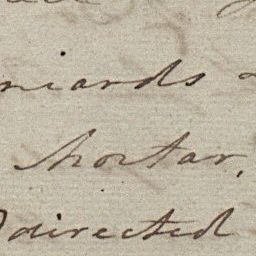 niards
Mortar,
directed